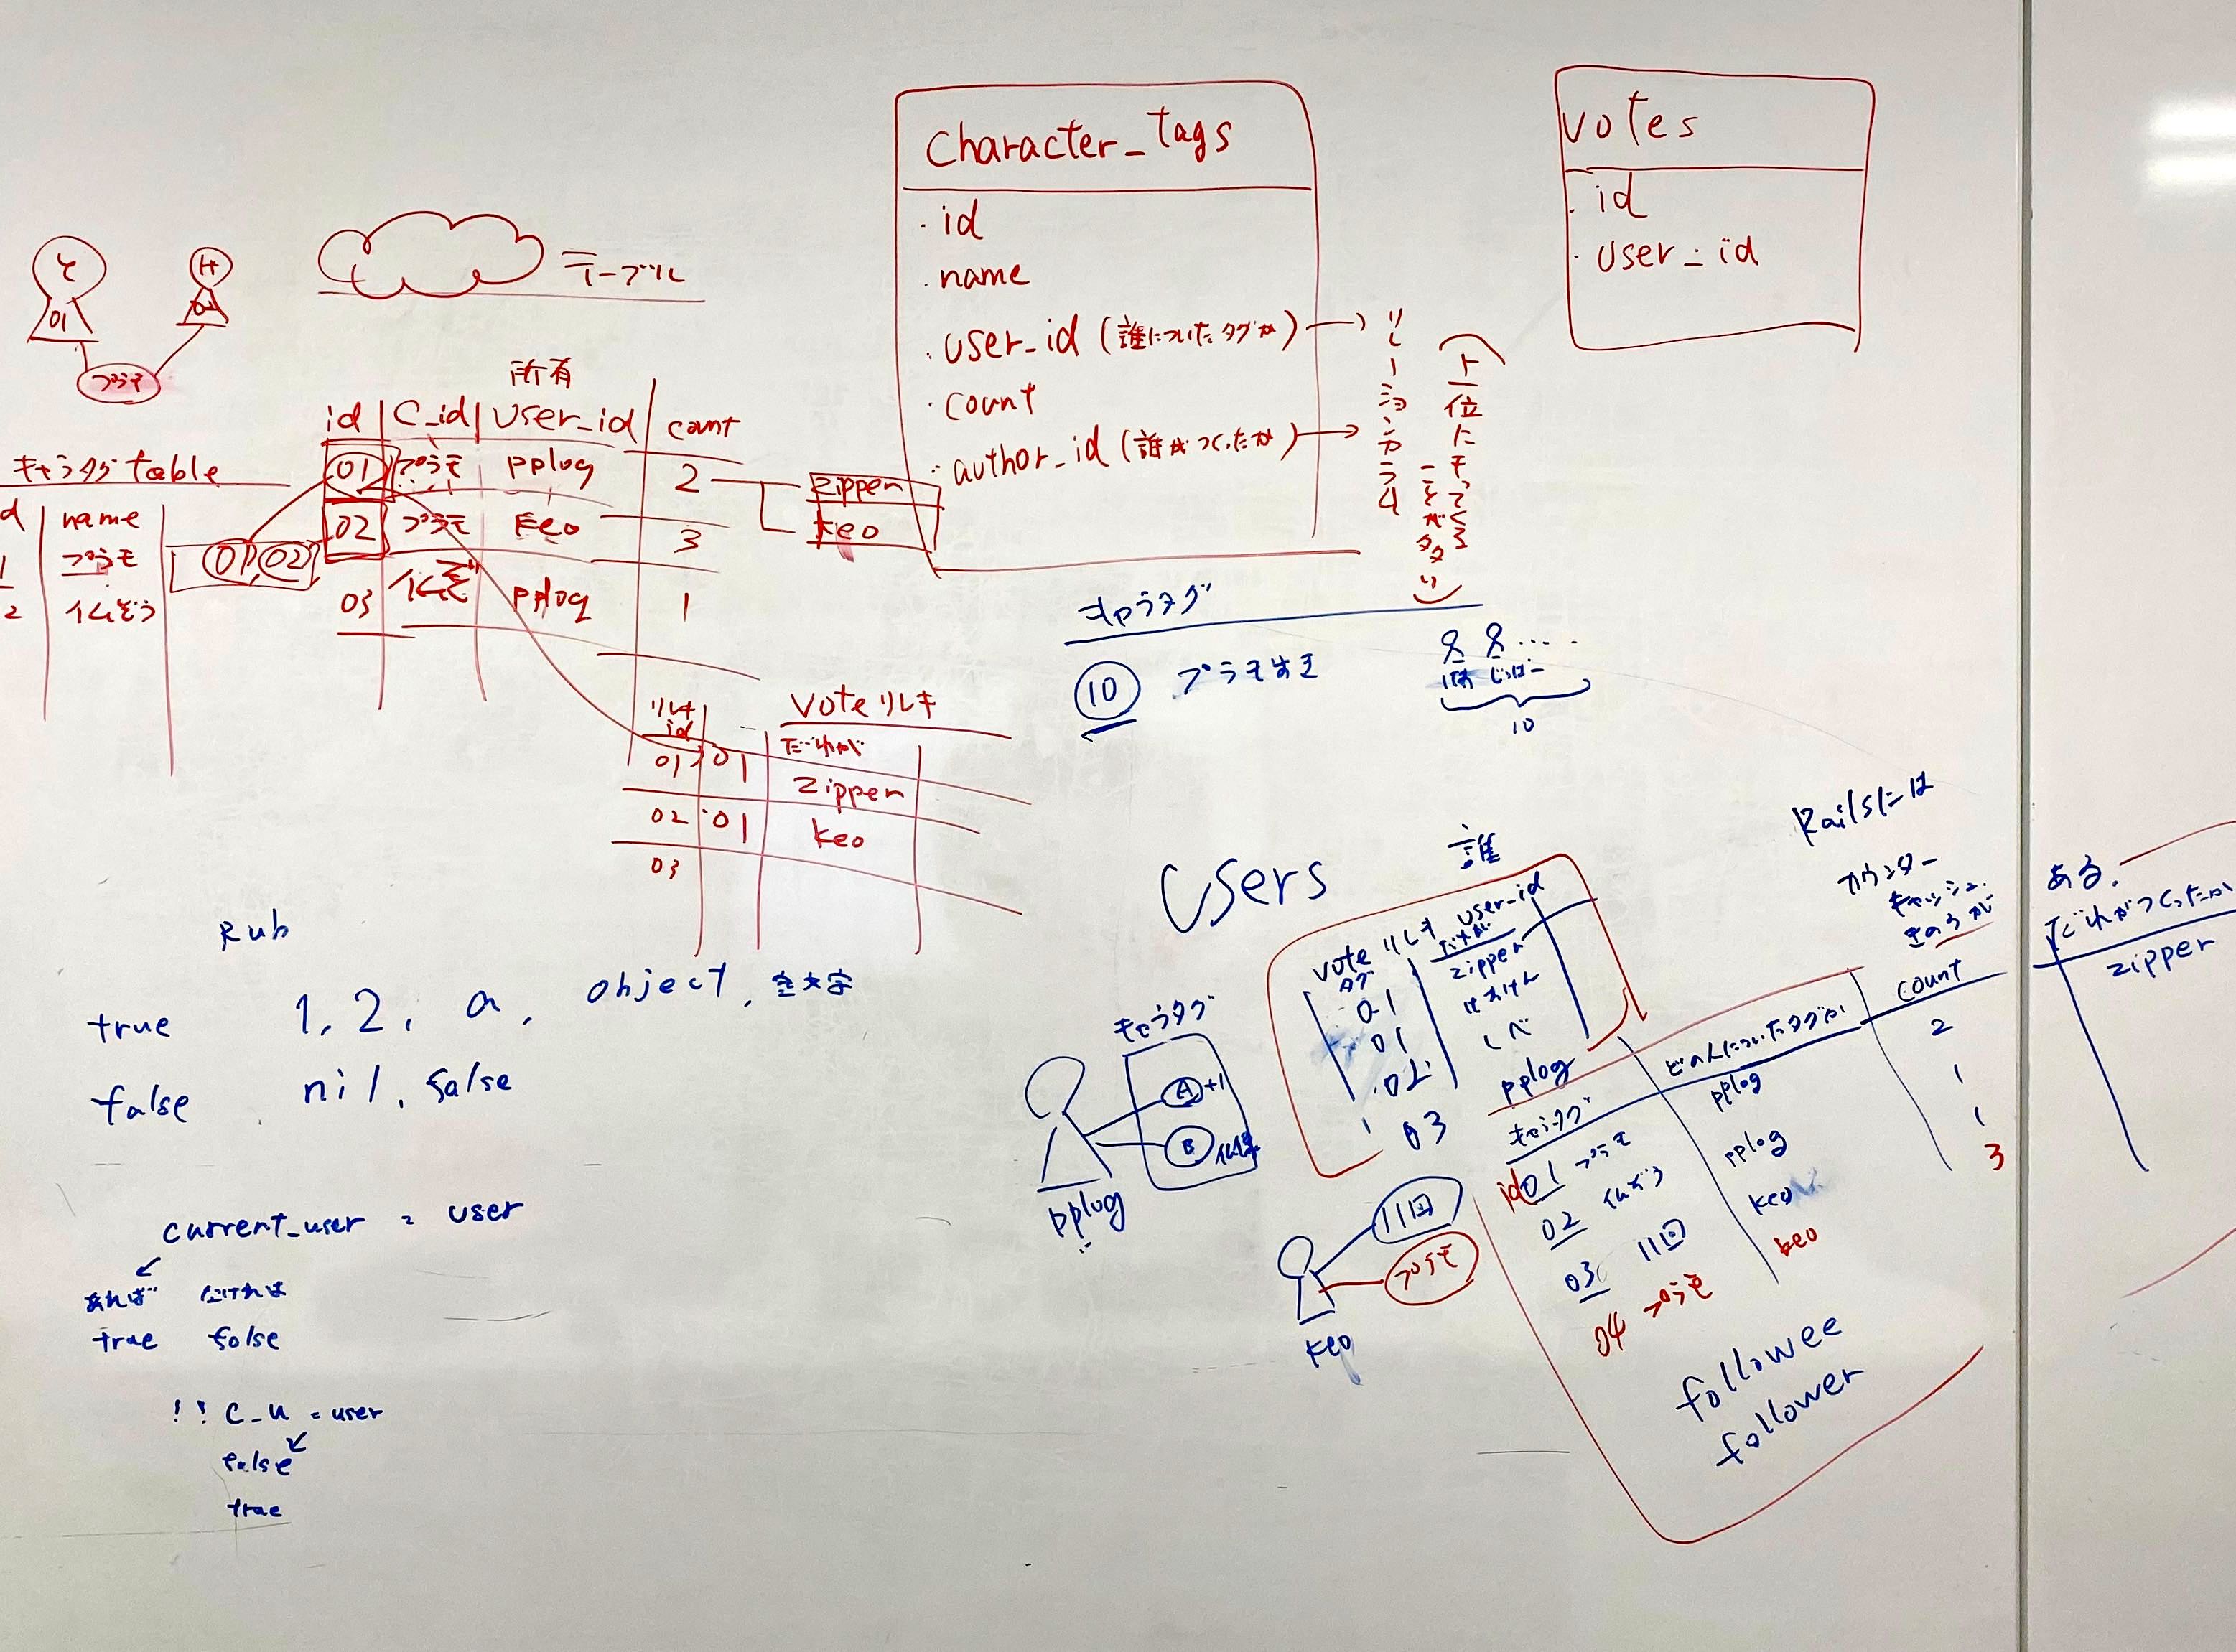 Character_tags
・id
・name
・user_id (誰についたタグか)
・count
・author_id (誰がつくったか)
リレーションカラム
(下位にもってくることが多い)
votes
・id
・user_id
と
01
H
02
プラモ
テーブル
所有
id C_id user_id count
01 プラモ pplog 2
02 プラモ keo 3
03 仏ぞう pplog 1
zipper
keo
キャラタグ table
id name
1 プラモ 01 02
2 仏ぞう
Vote リレキ
リレキ id だれが
01 01 zipper
02 01 keo
03
キャラタグ
10 プラモ好き
10
Rub
true 1, 2, a, object, 空文字
false nil, false
current_user = user
あれば なければ
true false
!! c_u = user
false
true
Users
誰
vote リレキ user_id
タグ だれが
01 zipper
01 けんけん
02 しべ
03 pplog
キャラタグ
A +1
B 仏像
pplog
11回
プラモ
keo
Railsには
カウンター
キャッシュ
きのうが
ある.
キャラタグ どの人についたタグか count だれがつくったか
id 01 プラモ pplog 2 zipper
02 仏ぞう pplog 1
03 11回 keo 1
04 プラモ keo 3
followee
follower